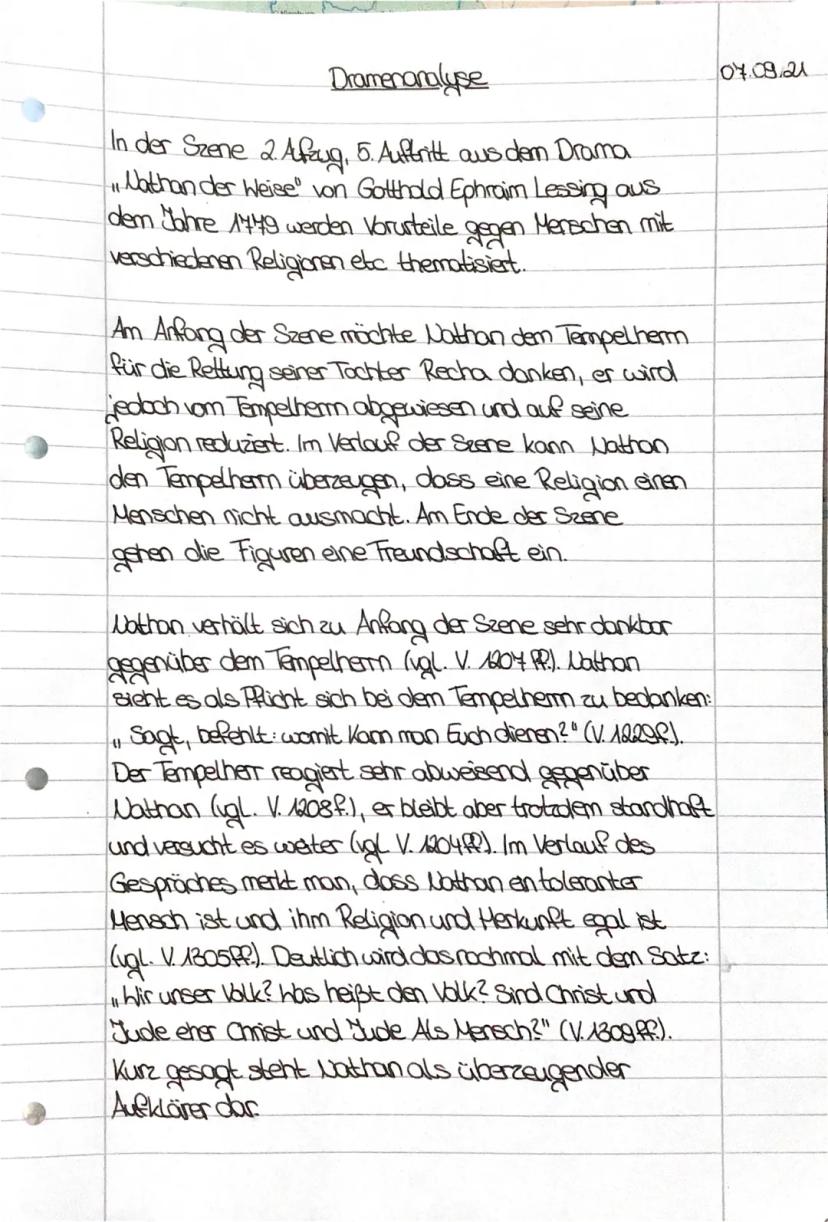 Dramenanalyse
07.09.21
In der Szene 2. Afzug, 5. Auftritt aus dem Drama
„Nathan der Weise" von Gotthold Ephraim Lessing aus
dem Jahre 1779 werden Vorurteile gegen Menschen mit
verschiedenen Religionen etc thematisiert.
Am Anfang der Szene möchte Nathan dem Tempelherrn
für die Rettung seiner Tochter Recha danken, er wird
jedoch vom Tempelherrn abgewiesen und auf seine
Religion reduziert. Im Verlauf der Szene kann Nathan
den Tempelherrn überzeugen, dass eine Religion einen
Menschen nicht ausmacht. Am Ende der Szene
gehen die Figuren eine Freundschaft ein.
Nathan verhält sich zu Anfang der Szene sehr dankbar
gegenüber dem Tempelherrn (vgl. V. 1207 ff.). Nathan
sieht es als Pflicht sich bei dem Tempelherrn zu bedanken:
„Sagt, befehlt: womit kann man Euch dienen?" (V. 1229f.).
Der Tempelherr reagiert sehr abweisend gegenüber
Nathan (vgl. V. 1208f.), er bleibt aber trotzdem standhaft
und versucht es weiter (vgl. V. 1204ff.). Im Verlauf des
Gespräches merkt man, dass Nathan en toleranter
Mensch ist und ihm Religion und Herkunft egal ist
(vgl. V. 1305ff.). Deutlich wird das nochmal mit dem Satz:
„Wir unser Volk? Was heißt den Volk? Sind Christ und
Jude eher Christ und Jude Als Mensch?" (V. 1309ff.).
Kurz gesagt steht Nathan als überzeugender
Aufklärer dar.